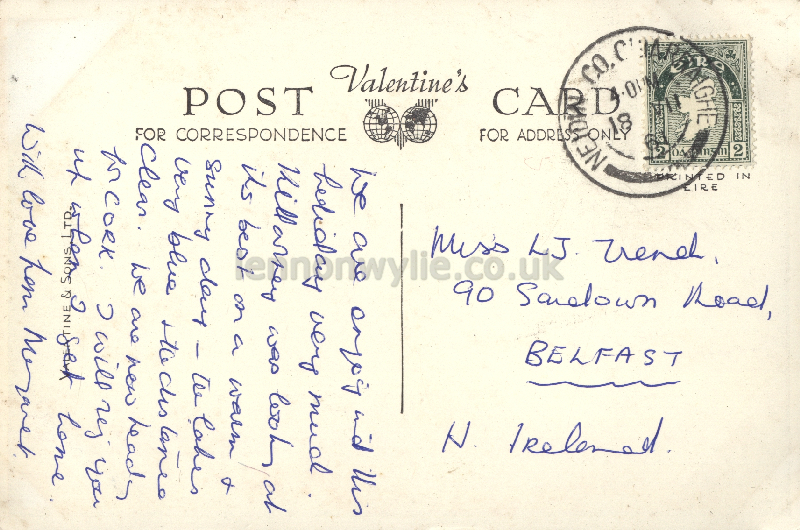 Valentine's
POST CARD
FOR CORRESPONDENCE
FOR ADDRESS ONLY
CO. CHIARRAIGHE
18
ÉIRE
2 2
PRINTED IN
EIRE
We are enjoying this
holiday very much.
Killarney was looking at
its best on a warm &
sunny day - the lakes
very blue & the distance
clear. We are now heading
to Cork. I will ring you
up when I get home.
With love from Margaret.
VALENTINE & SONS, LTD.
Miss L.J. Trench,
90 Sandown Road,
BELFAST
N. Ireland.
lennonwylie.co.uk